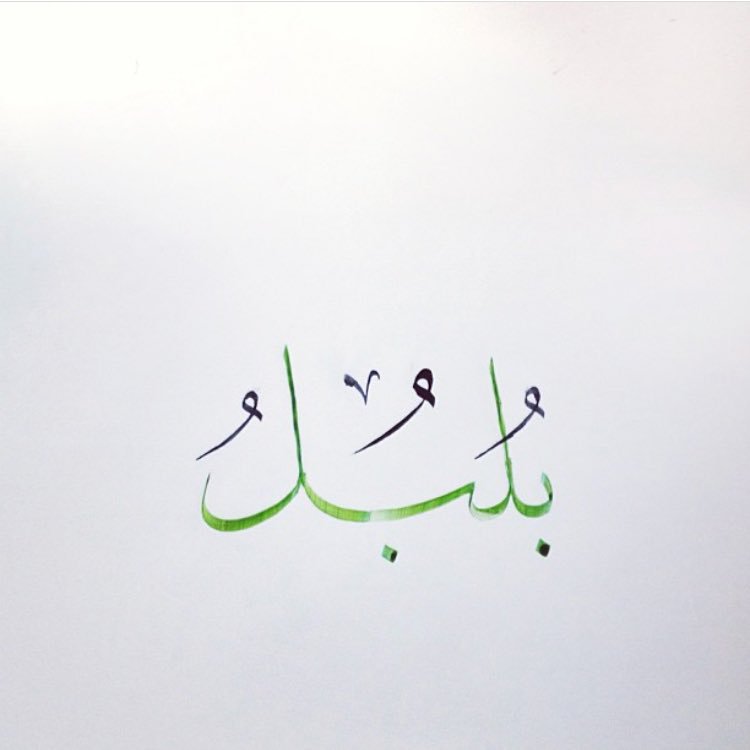 بُلبُلُ